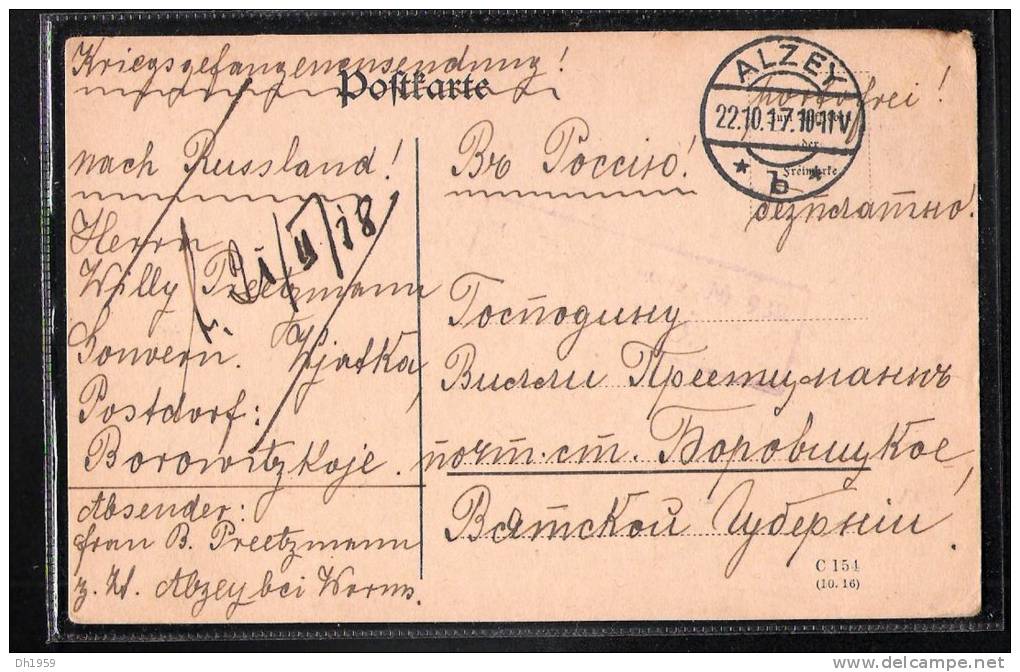 Kriegsgefangenensendung!
Postkarte
ALZEY
22.10.17.10-11V
* b *
der
Freimarke
portofrei!
nach Russland!
Въ Россiю!
безплатно.
21/II/18
Herrn
Willy Preetzmann
Gouvern. Wjatka,
Postdorf:
Borowitzkoje.
Господину
Вилли Преетцманнъ
почт. ст. Боровицкое,
Вятской Губернiи.
Absender:
Frau B. Preetzmann
z. Zt. Alzey bei Worms.
C 154
(10. 16)
Dh1959
delcampe.net